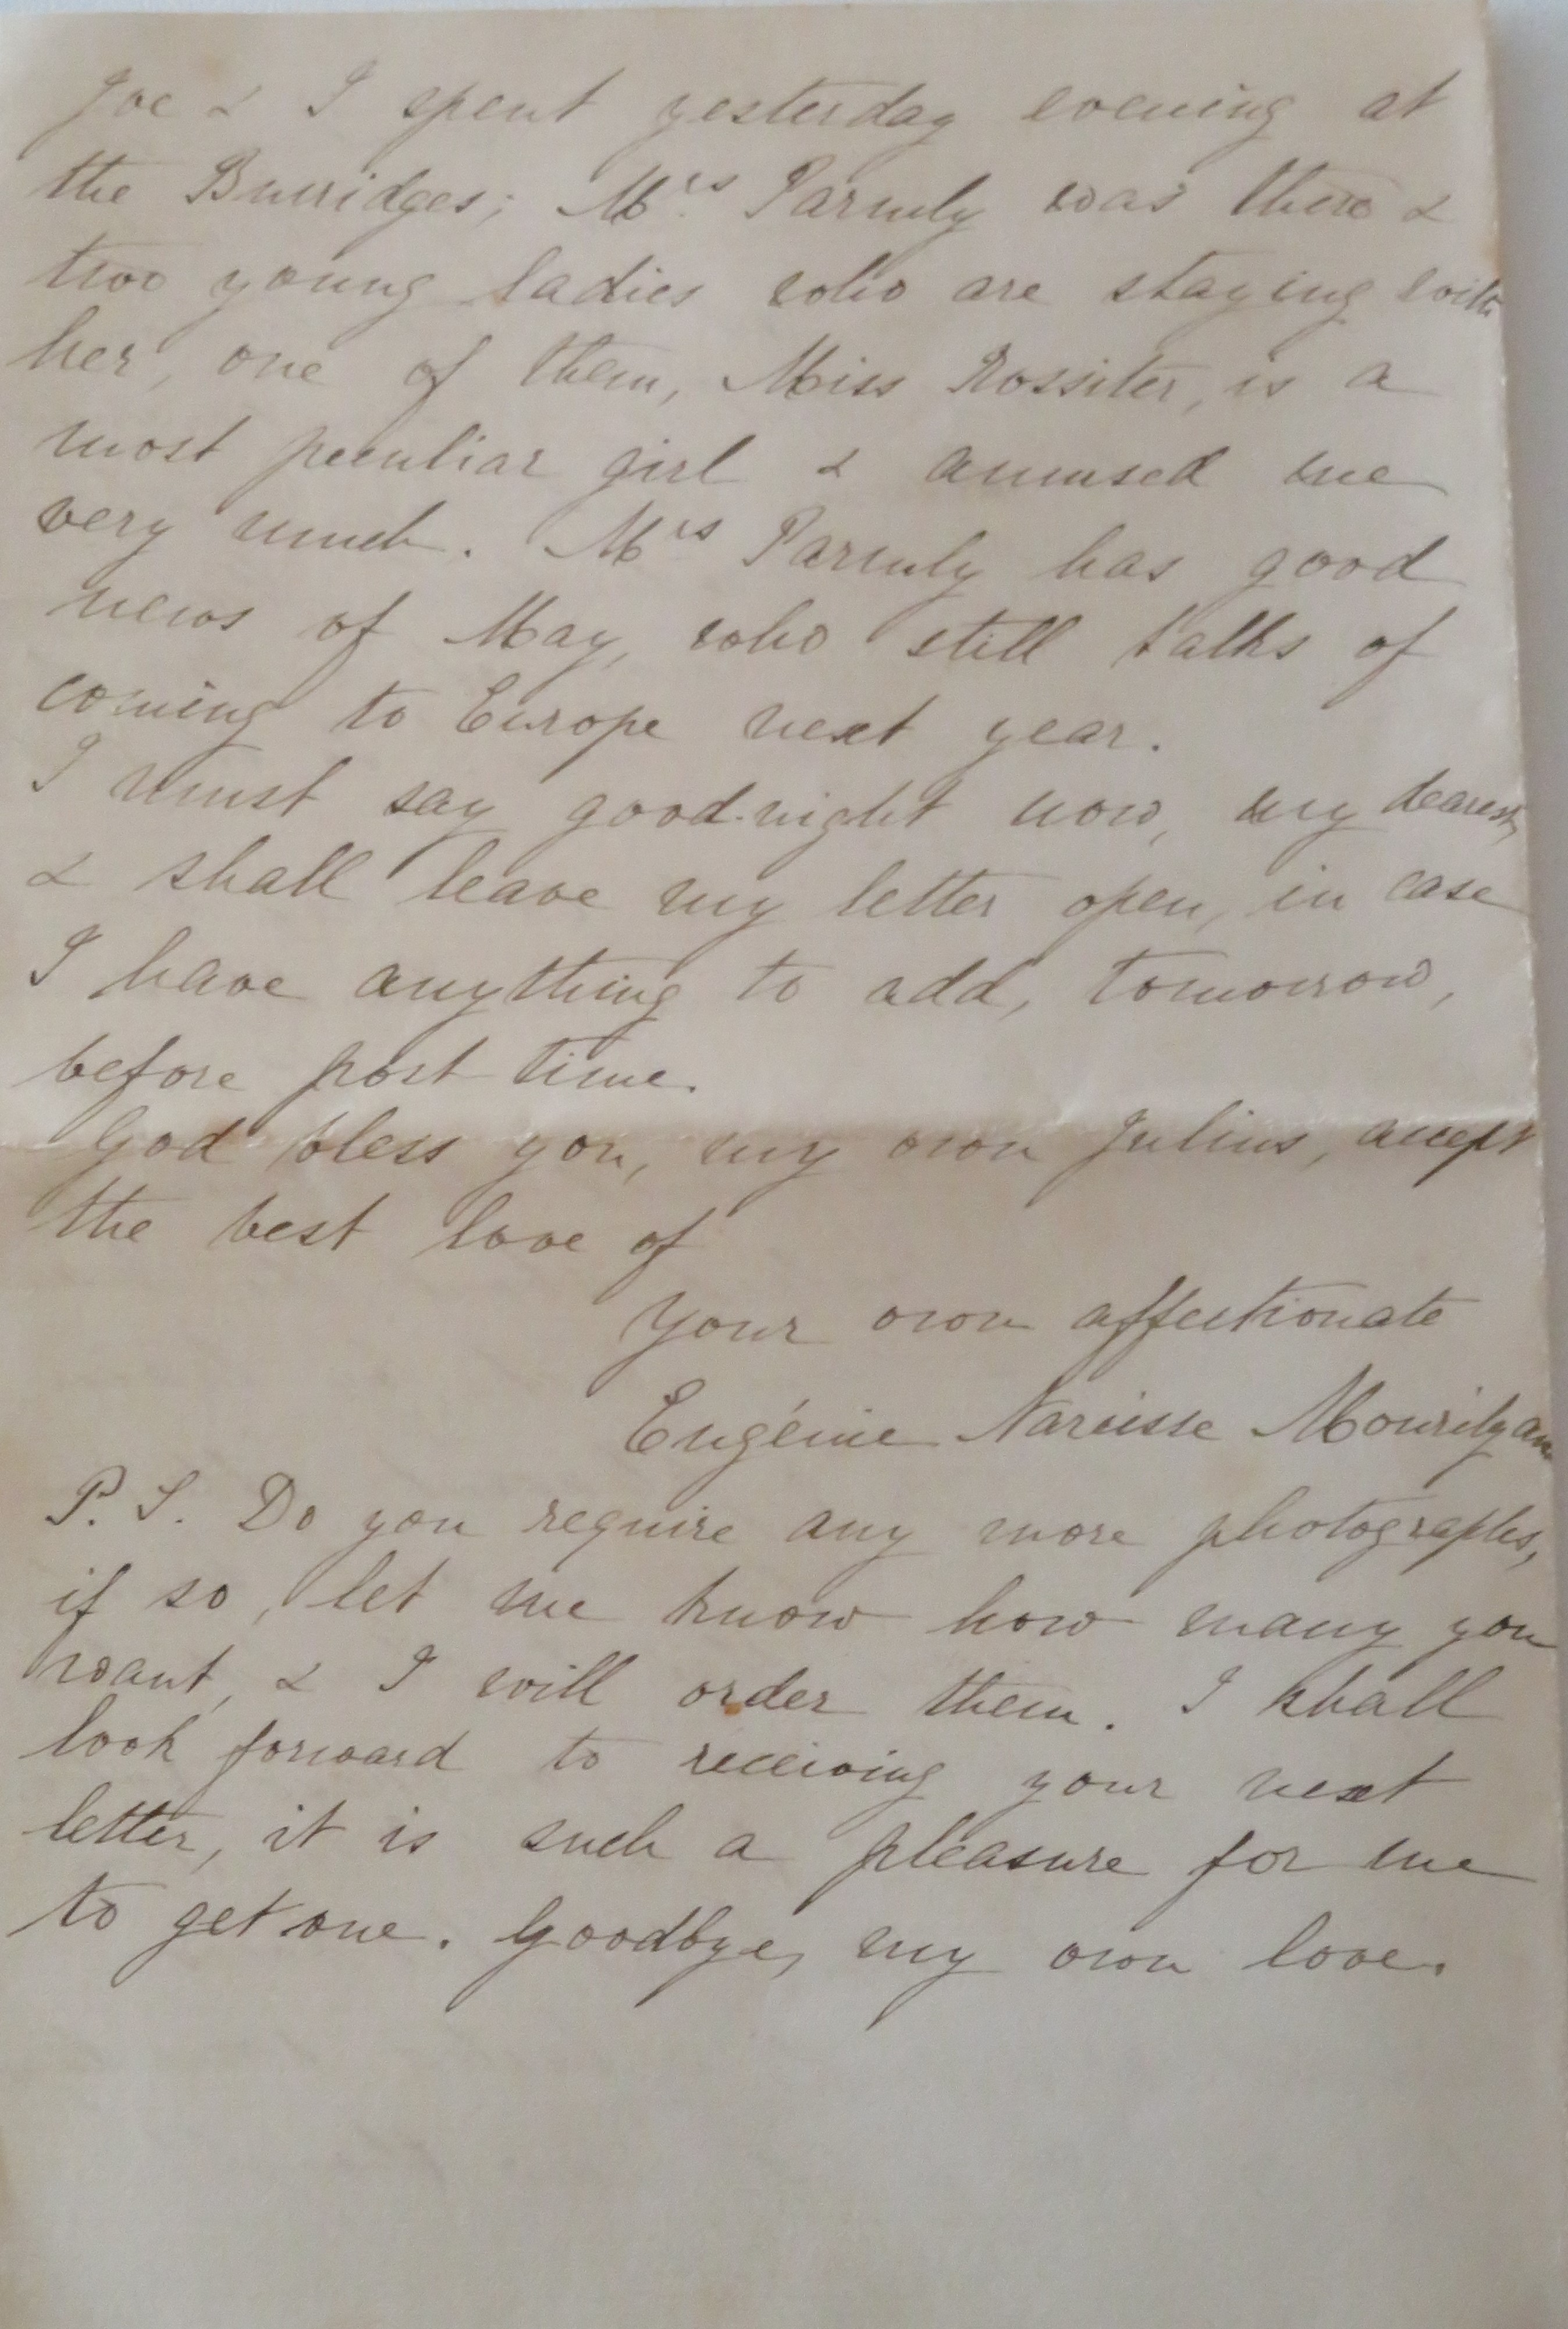 Joe & I spent yesterday evening at
the Burridges; Mrs. Parmly was there &
two young ladies who are staying with
her, one of them, Miss Rossiter, is a
most peculiar girl & amused me
very much. Mrs Parmly has good
news of May, who still talks of
coming to Europe next year.
I must say good-night now, my dearest,
& shall leave my letter open, in case
I have anything to add, tomorrow,
before post time.
God bless you, my own Julius, accept
the best love of
Your own affectionate
Eugénie Narcisse Mourilyan
P.S. Do you require any more photographs,
if so, let me know how many you
want, & I will order them. I shall
look forward to receiving your next
letter, it is such a pleasure for me
to get one. Goodbye, my own love.